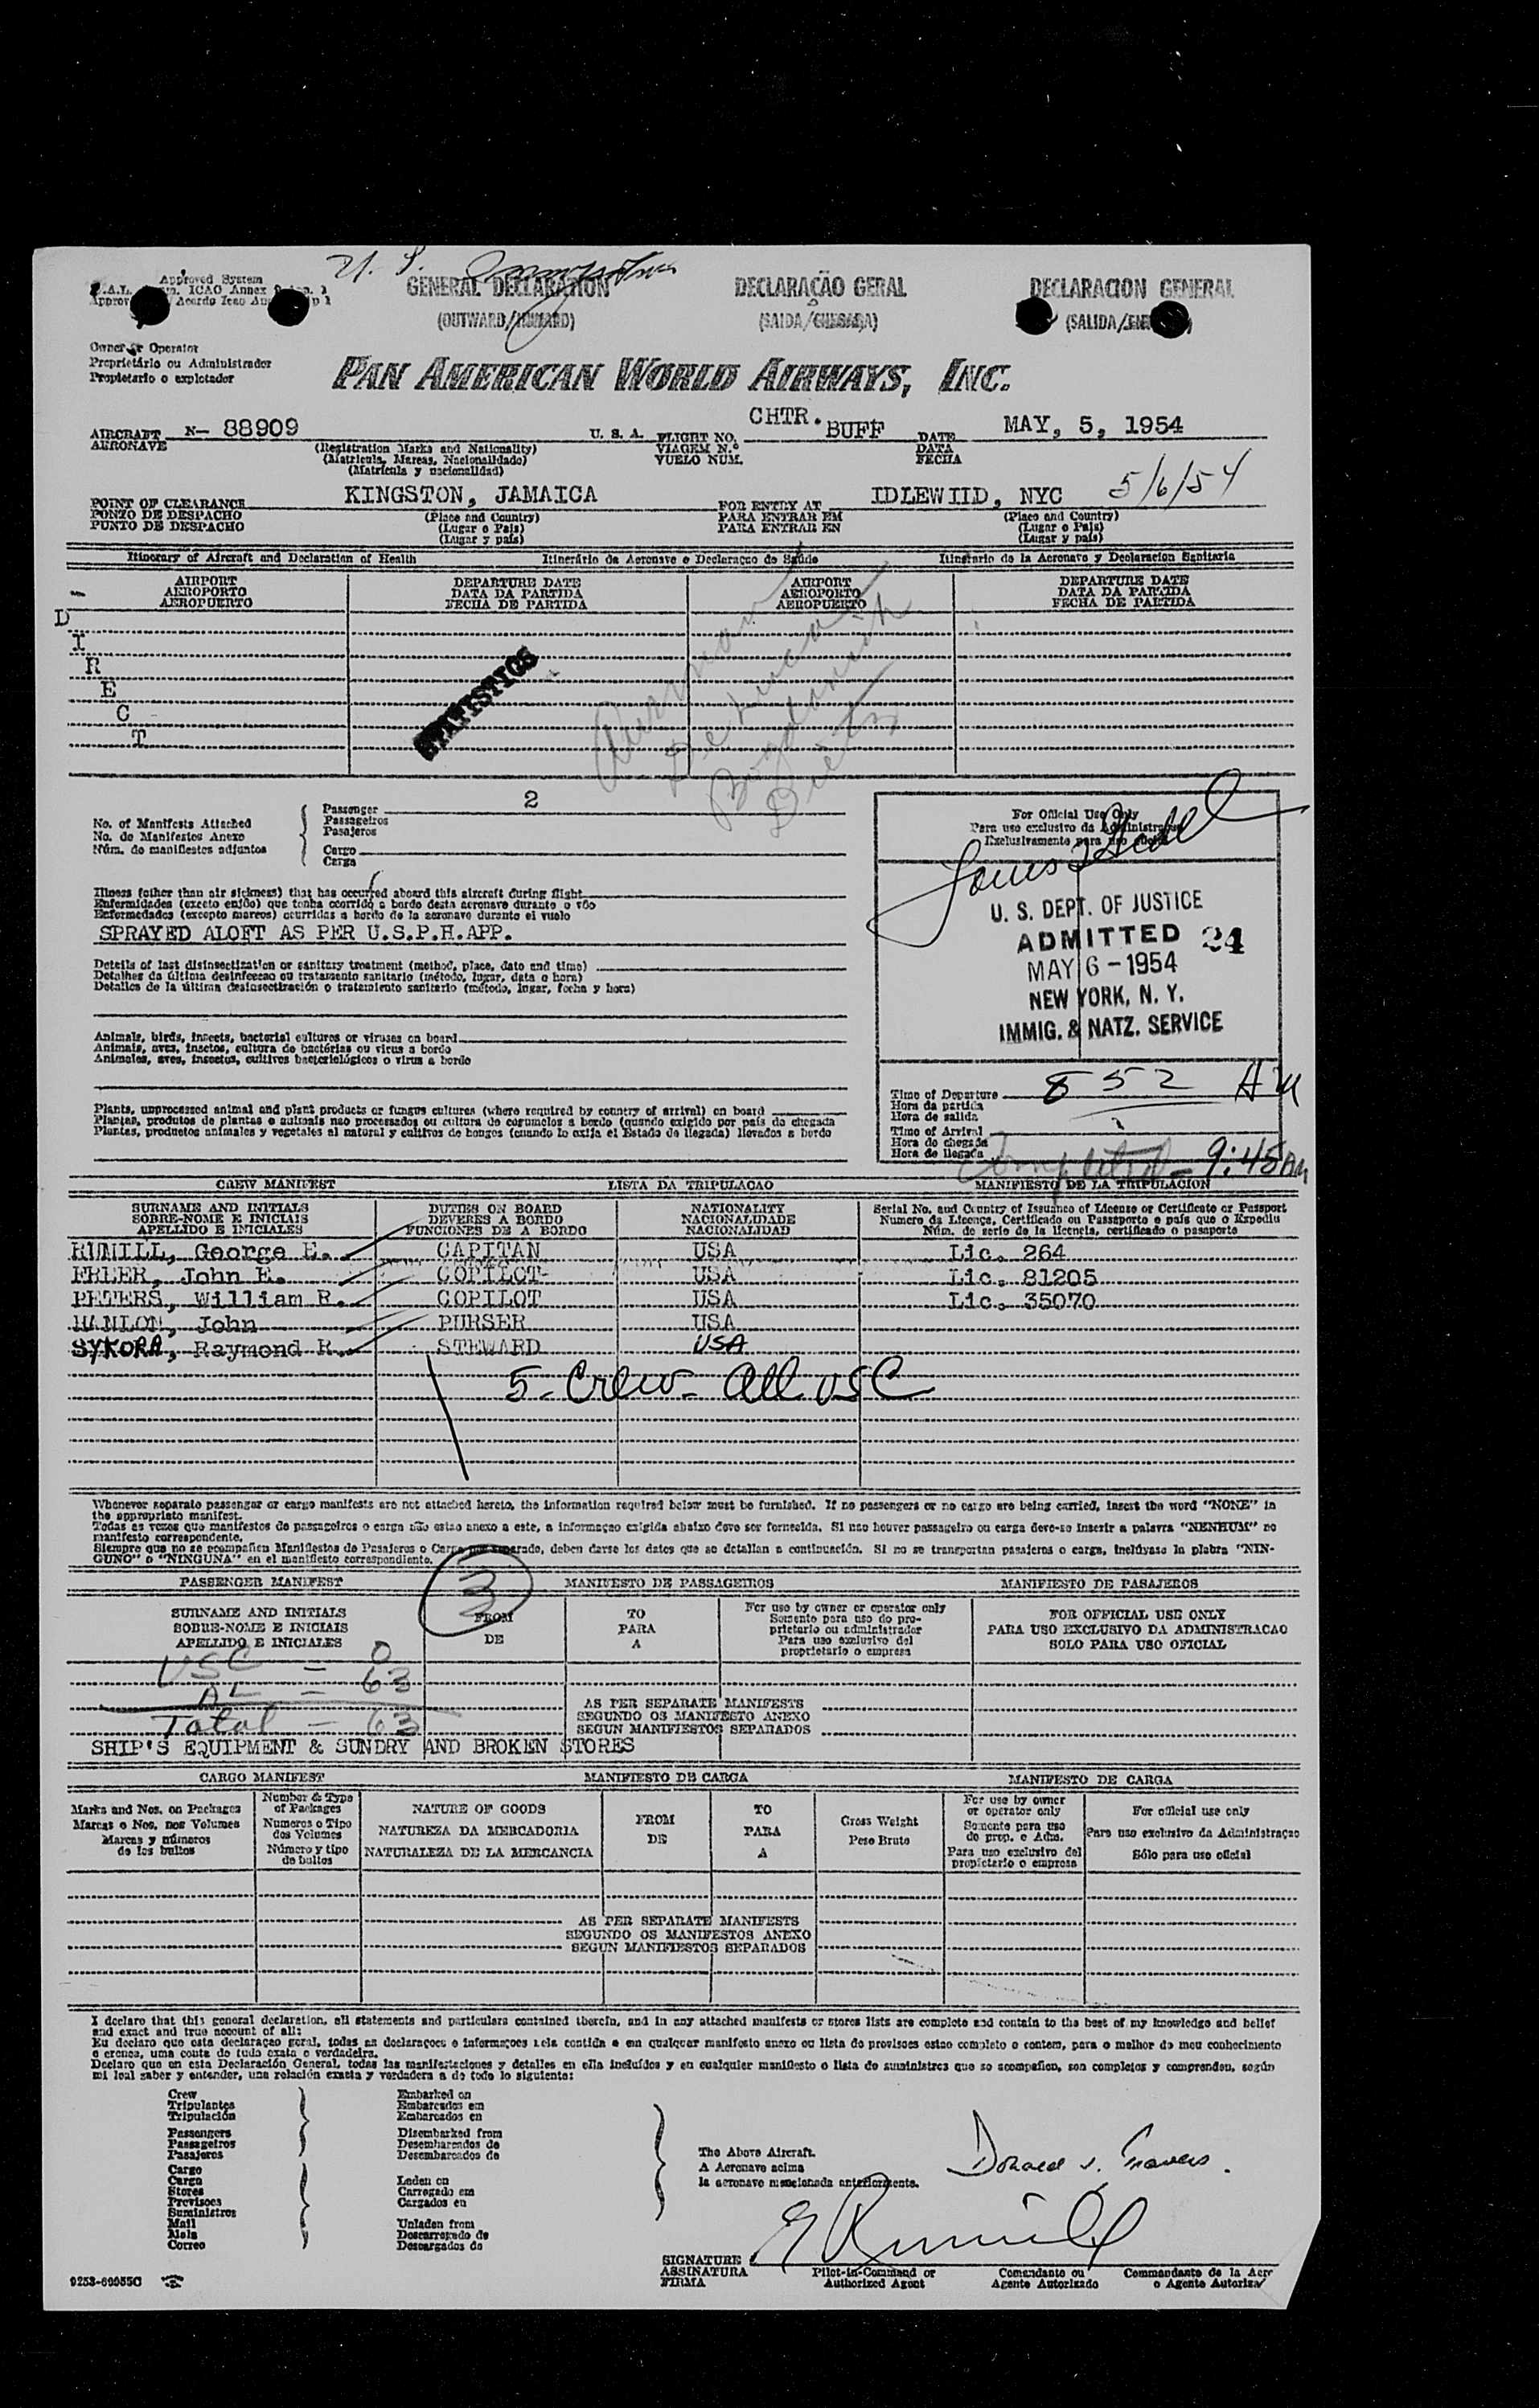 U. S.
Approved System
ICAO Annex
GENERAL DECLARATION DECLARAÇÃO GERAL DECLARACION GENERAL
(OUTWARD/INWARD) (SAIDA/CHEGADA) (SALIDA/
Owner or Operator
Proprietário ou Administrador
Propietario o explotador
PAN AMERICAN WORLD AIRWAYS, INC.
AIRCRAFT N- 88909 U. S. A. FLIGHT NO. CHTR. BUFF DATE MAY, 5, 1954
AERONAVE (Registration Marks and Nationality) VIAGEM N.º DATA
(Matricula, Marcas, Nacionalidade) VUELO NUM. FECHA
(Matrícula y nacionalidad)
5/6/54
POINT OF CLEARANCE KINGSTON, JAMAICA FOR ENTRY AT IDLEWIID, NYC
PONTO DE DESPACHO (Place and Country) PARA ENTRAR EM (Place and Country)
PUNTO DE DESPACHO (Lugar e País) PARA ENTRAR EN (Lugar e País)
(Lugar y país) (Lugar y país)
Itinerary of Aircraft and Declaration of Health Itinerário da Aeronave e Declaraçao de Saúde Itinerario de la Aeronave y Declaracion Sanitaria
AIRPORT DEPARTURE DATE AIRPORT DEPARTURE DATE
AEROPORTO DATA DA PARTIDA AEROPORTO DATA DA PARTIDA
AEROPUERTO FECHA DE PARTIDA AEROPUERTO FECHA DE PARTIDA
D
I
R
E
C
T
STATISTICS
No. of Manifests Attached Passenger 2
No. de Manifestos Anexo Passageiros
Núm. de manifiestos adjuntos Pasajeros
Cargo
Carga
For Official Use Only
Para uso exclusivo da Administraçao
Exclusivamente para uso oficial
U. S. DEPT. OF JUSTICE
ADMITTED 24
MAY 6 - 1954
NEW YORK, N. Y.
IMMIG. & NATZ. SERVICE
Illness (other than air sickness) that has occurred aboard this aircraft during flight
Enfermidades (exceto enjôo) que tenha ocorrido a bordo desta aeronave durante o vôo
Enfermedades (excepto mareos) ocurridas a bordo de la aeronave durante el vuelo
SPRAYED ALOFT AS PER U.S.P.H.APP.
Details of last disinsectization or sanitary treatment (method, place, date and time)
Detalhes da última desinfeccao ou tratamento sanitario (método, lugar, data e hora)
Detalles de la última desinsectización o tratamiento sanitario (método, lugar, fecha y hora)
Animals, birds, insects, bacterial cultures or viruses on board
Animais, aves, insetos, cultura de bactérias ou virus a bordo
Animales, aves, insectos, cultivos bacteriológicos o virus a bordo
Plants, unprocessed animal and plant products or fungus cultures (where required by country of arrival) on board
Plantas, produtos de plantas e animais nao processados ou cultura de cogumelos a bordo (quando exigido por país de chegada
Plantas, productos animales y vegetales al natural y cultivos de hongos (cuando lo exija el Estado de llegada) llevados a bordo
Time of Departure 8 52 AM
Hora da partida
Hora de salida
Time of Arrival
Hora de chegada
Hora de llegada
Completed - 9:45 AM
CREW MANIFEST LISTA DA TRIPULACAO MANIFIESTO DE LA TRIPULACION
SURNAME AND INITIALS DUTIES ON BOARD NATIONALITY Serial No. and Country of Issuance of License or Certificate or Passport
SOBRE-NOME E INICIAIS DEVERES A BORDO NACIONALIDADE Numero da Licença, Certificado ou Passaporte e país que o Expediu
APELLIDO E INICIALES FUNCIONES DE A BORDO NACIONALIDAD Núm. de serie de la licencia, certificado o pasaporte
RUMILL, George E. CAPITAN USA Lic. 264
FRLER, John E. COPILOT USA Lic. 81205
PETERS, William R. COPILOT USA Lic. 35070
HANLON, John PURSER USA
SYKORA, Raymond R. STEWARD USA
5 - Crew - all USC
Whenever separate passenger or cargo manifests are not attached hereto, the information required below must be furnished. If no passengers or no cargo are being carried, insert the word "NONE" in
the appropriate manifest.
Todas as vezes que manifestos de passageiros o carga não estao anexo a este, a informaçao exigida abaixo deve ser fornecida. Si nao houver passageiro ou carga deve-se inserir a palavra "NENHUM" no
manifesto correspondente.
Siempre que no se acompañen Manifiestos de Pasajeros o Carga por separado, deben darse los datos que se detallan a continuación. Si no se transportan pasajeros o carga, inclúyase la plabra "NIN-
GUNO" o "NINGUNA" en el manifiesto correspondiente.
3
PASSENGER MANIFEST MANIFESTO DE PASSAGEIROS MANIFIESTO DE PASAJEROS
SURNAME AND INITIALS FROM TO For use by owner or operator only FOR OFFICIAL USE ONLY
SOBRE-NOME E INICIAIS DE PARA Somente para uso do pro- PARA USO EXCLUSIVO DA ADMINISTRACAO
APELLIDO E INICIALES A prietario ou administrador SOLO PARA USO OFICIAL
Para uso exclusivo del
proprietario o empresa
USC = 0
AL = 63
Total - 63
AS PER SEPARATE MANIFESTS
SEGUNDO OS MANIFESTO ANEXO
SEGUN MANIFIESTOS SEPARADOS
SHIP'S EQUIPMENT & SUNDRY AND BROKEN STORES
CARGO MANIFEST MANIFIESTO DE CARGA MANIFESTO DE CARGA
Marks and Nos. on Packages Number & Type of Packages NATURE OF GOODS FROM TO Gross Weight For use by owner or operator only For official use only
Marcas e Nos. nos Volumes Numeros o Tipo dos Volumes NATUREZA DA MERCADORIA DE PARA Peso Bruto Somente para uso do prop. e Adm. Para uso exclusivo da Administraçao
Marcas y números de los bultos Número y tipo de bultos NATURALEZA DE LA MERCANCIA A Para uso exclusivo del propietario o empresa Sólo para uso oficial
AS PER SEPARATE MANIFESTS
SEGUNDO OS MANIFESTOS ANEXO
SEGUN MANIFIESTOS SEPARADOS
I declare that this general declaration, all statements and particulars contained therein, and in any attached manifests or stores lists are complete and contain to the best of my knowledge and belief
and exact and true account of all:
Eu declaro que esta declaraçao geral, todas as declaraçoes e informaçoes nela contida e em qualquer manifesto anexo ou lista de provisoes estao completo e contem, para o melhor do meu conhecimento
e crença, uma conta de tudo exata e verdadeira.
Declaro que en esta Declaración General, todas las manifestaciones y detalles en ella incluídos y en cualquier manifiesto o lista de suministros que se acompañen, son completos y comprenden, según
mi leal saber y entender, una relación exacta y verdadera a de todo lo siguiente:
Crew Embarked on
Tripulantes Embarcados em
Tripulación Embarcados en
Passengers Disembarked from
Passageiros Desembarcados de
Pasajeros Desembarcados de
Cargo
Carga Laden on
Stores Carregado em
Provisoes Cargados en
Suministros
Mail Unladen from
Mala Descarregado de
Correo Descargados de
The Above Aircraft.
A Aeronave acima
la aeronave mencionada anteriormente.
Donald J. Travers.
E Rumill
SIGNATURE Pilot-in-Command or Comandante ou Commandante de la Aer
ASSINATURA Authorized Agent Agente Autorizado o Agente Autoriza
FIRMA
9253-69955C